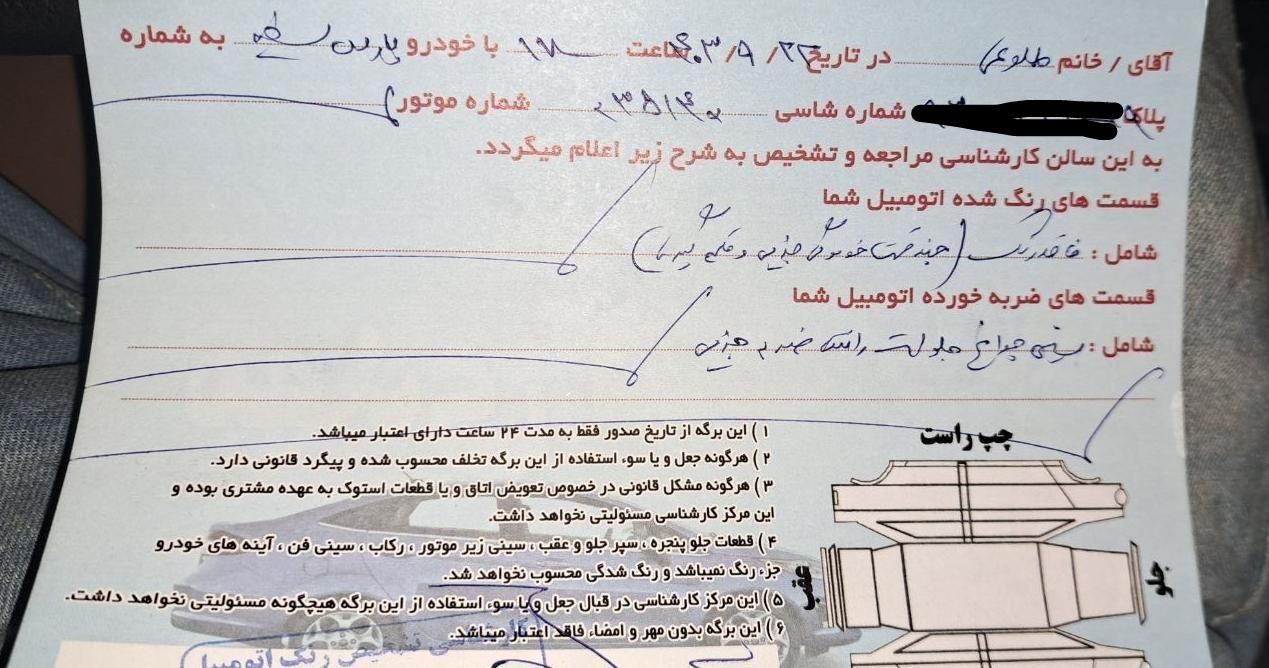 آقای / خانم طلوعی در تاریخ ۱۴۰۳/۹/۲۲ ساعت ۱۷ با خودرو به شماره
پلاک شماره شاسی شماره موتور
به این سالن کارشناسی مراجعه و تشخیص به شرح زیر اعلام میگردد.
قسمت های رنگ شده اتومبیل شما
شامل : فاقد رنگ (چند قسمت خوردگی جزیی و قلم گیری)
قسمت های ضربه خورده اتومبیل شما
شامل : سینی چراغ جلو سمت راست ضربه جزیی
۱ ) این برگه از تاریخ صدور فقط به مدت ۲۴ ساعت دارای اعتبار میباشد.
۲ ) هرگونه جعل و یا سوء استفاده از این برگه تخلف محسوب شده و پیگرد قانونی دارد.
۳ ) هرگونه مشکل قانونی در خصوص تعویض اتاق و یا قطعات استوک به عهده مشتری بوده و
این مرکز کارشناسی مسئولیتی نخواهد داشت.
۴ ) قطعات جلو پنجره ، سپر جلو و عقب ، سینی زیر موتور ، رکاب ، سینی فن ، آینه های خودرو
جزء رنگ نمیباشد و رنگ شدگی محسوب نخواهد شد.
۵ ) این مرکز کارشناسی در قبال جعل و یا سوء استفاده از این برگه هیچگونه مسئولیتی نخواهد داشت.
۶ ) این برگه بدون مهر و امضاء فاقد اعتبار میباشد.
چپ راست
جلو
عقب
کارشناسی تشخیص رنگ اتومبیل